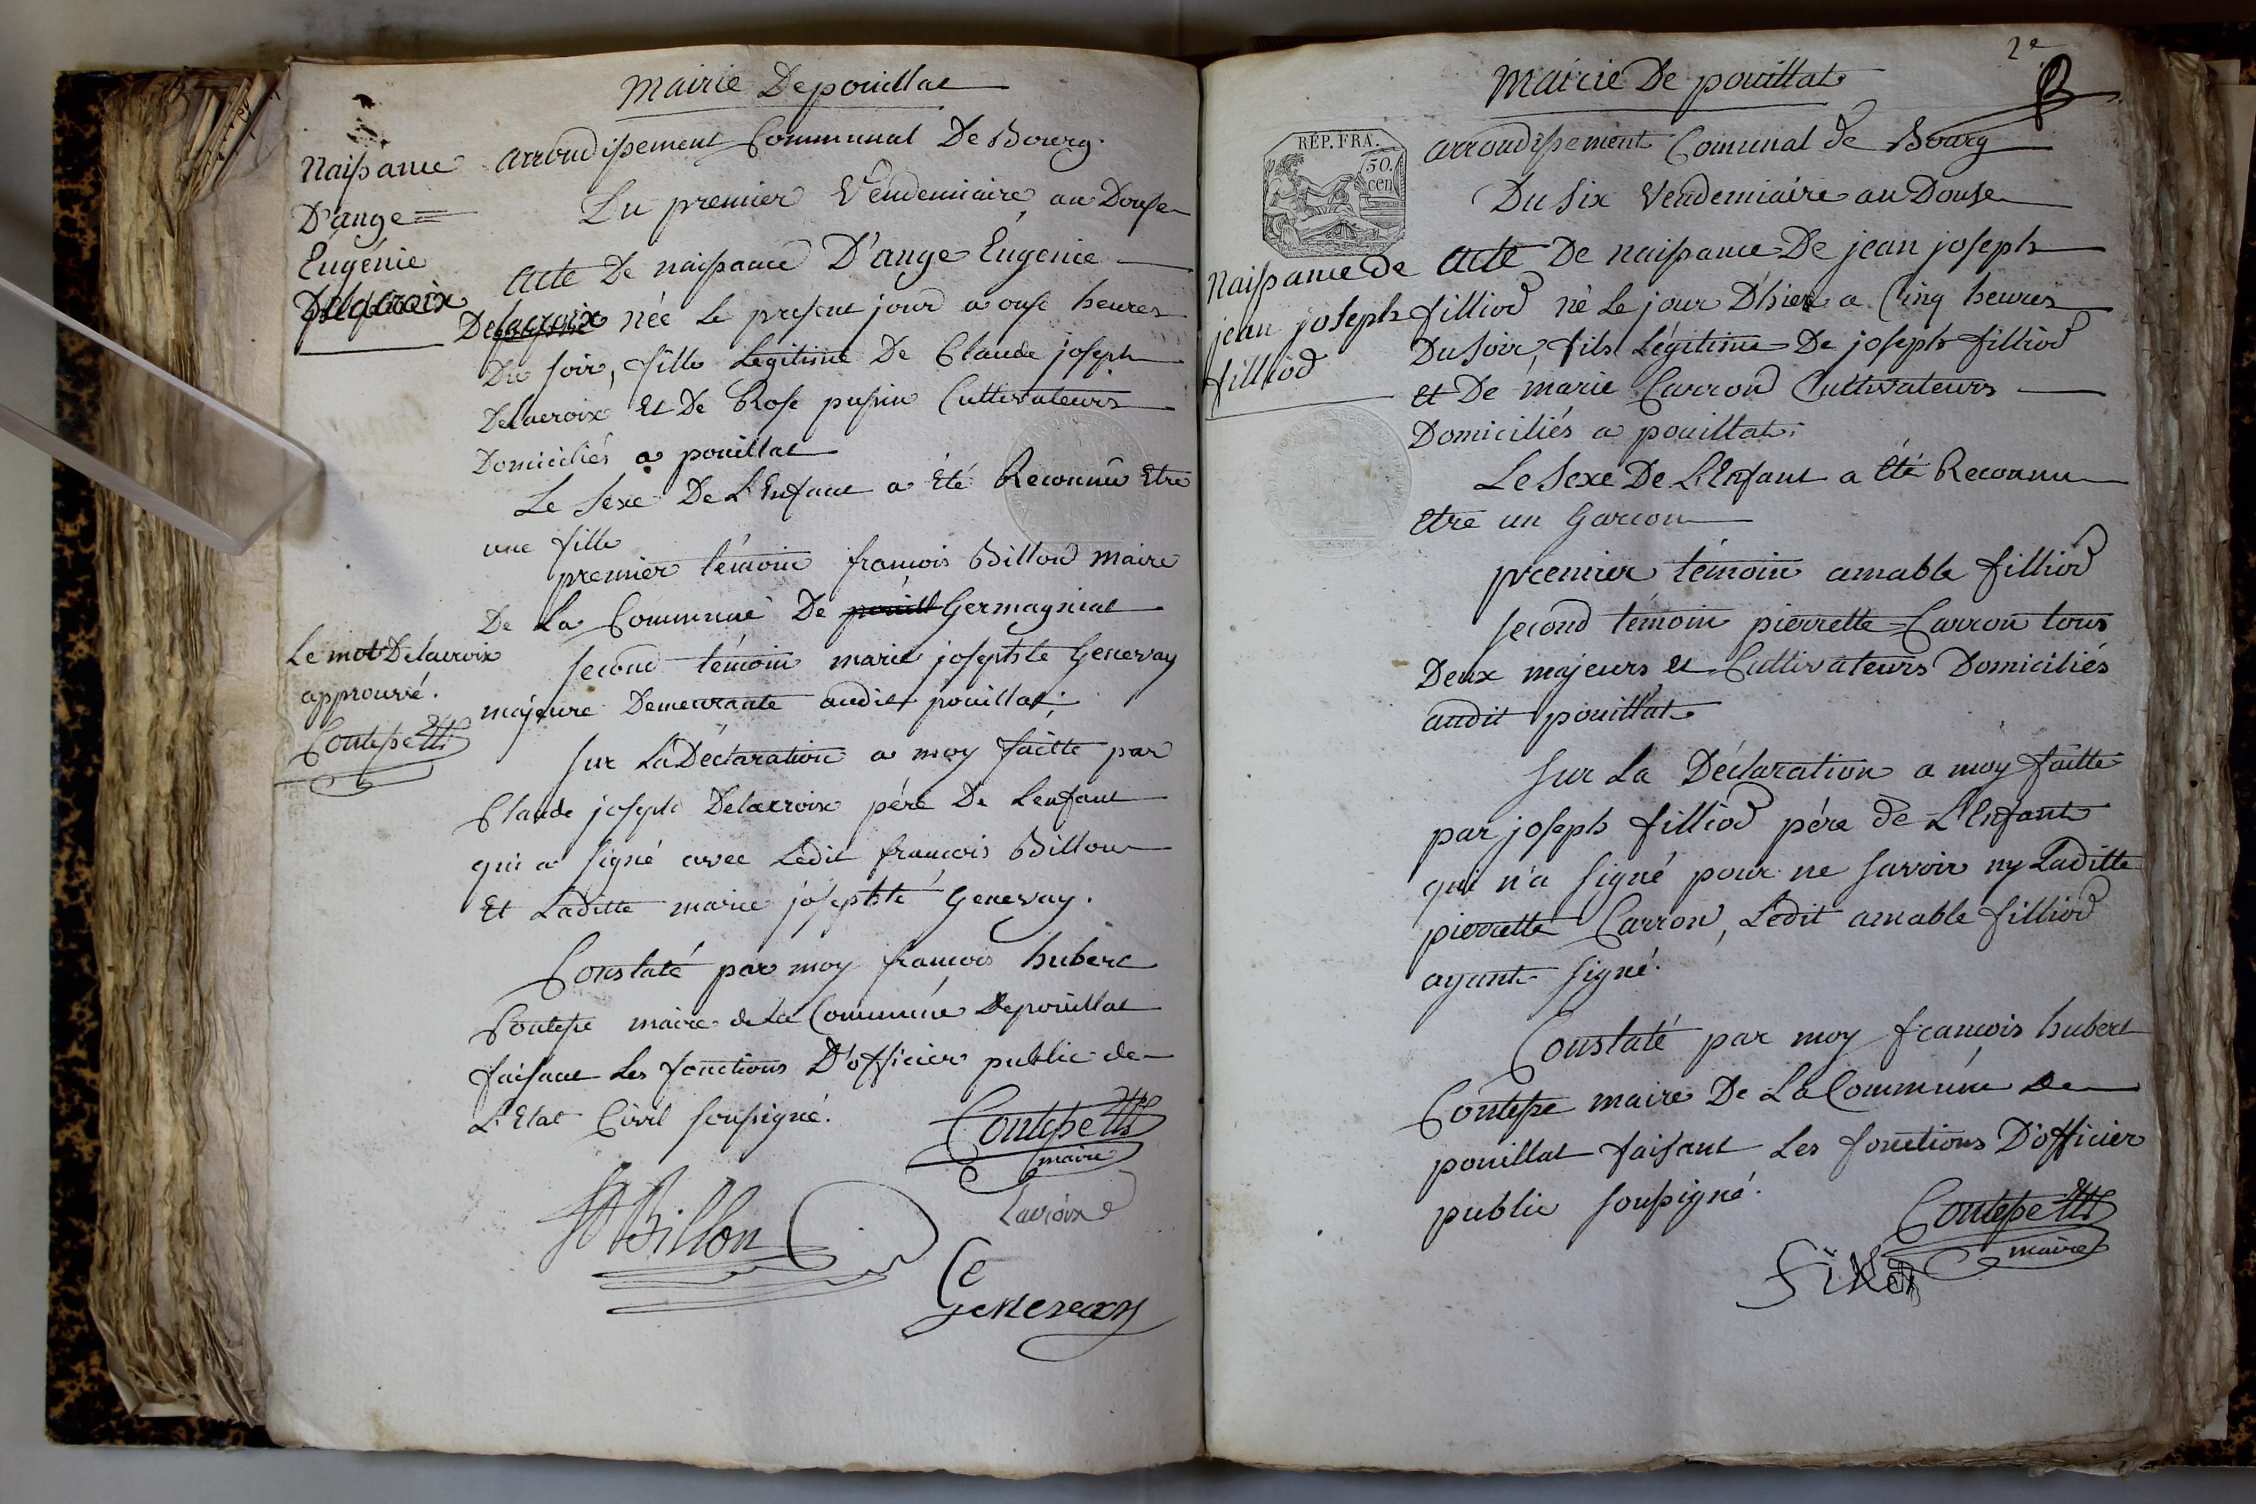 Mairie De pouillat
arrondissement Communal De Bourg.
Du premier Vendemiaire an Douse
Naissance
D'ange
Eugénie
Delacroix
acte De naissance D'ange Eugénie
Delacroix née Le present jour a onse heures
Du soir, fille Legitime De Claude joseph
Delacroix Et De Rose
Cultivateurs
Domiciliés a pouillat
Le sexe De L'Enfant a Eté Reconnu Etre
une fille
premier témoin francois Billon maire
De La Commune De pouill Germagniat
second témoin marie josephte Genevay
majeure Demeurante audit pouillat.
Le mot Delacroix
approuvé.
Contesse
Sur La Déclaration a moy faitte par
Claude joseph Delacroix père De Lenfant
qui a signé avec Ledit francois Billon
Et Laditte marie josephte Genevay.
Constaté par moy francois hubert
Contesse maire de La Commune De pouillat
faisant Les fonctions D'officier public de
L'Etat Civil soussigné.
Contesse
maire
Billon
Lacroix
Genevay
2e
Mairie De pouillat
RÉP. FRA.
50.
cen
arrondissement Comunal de Bourg
Du six Vendemiaire an Douse
Naissance de
jean joseph
filliod
acte De naissance De jean joseph
filliod né Le jour D'hier a Cinq heures
Du soir, fils Légitime De joseph filliod
et De marie Carron Cultivateurs
Domiciliés a pouillat.
Le sexe De L'Enfant a Eté Reconnu
Etre un Garcon
premier témoin amable filliod
second témoin pierrette Carron tous
Deux majeurs et Cultivateurs Domiciliés
audit pouillat
Sur La Déclaration a moy faitte
par joseph filliod père de L'Enfant
qui n'a signé pour ne savoir ny Laditte
pierrette Carron, Ledit amable filliod
ayant signé.
Constaté par moy francois hubert
Contesse maire De La Commune de
pouillat faisant Les fonctions D'officier
public soussigné.
Contesse
maire